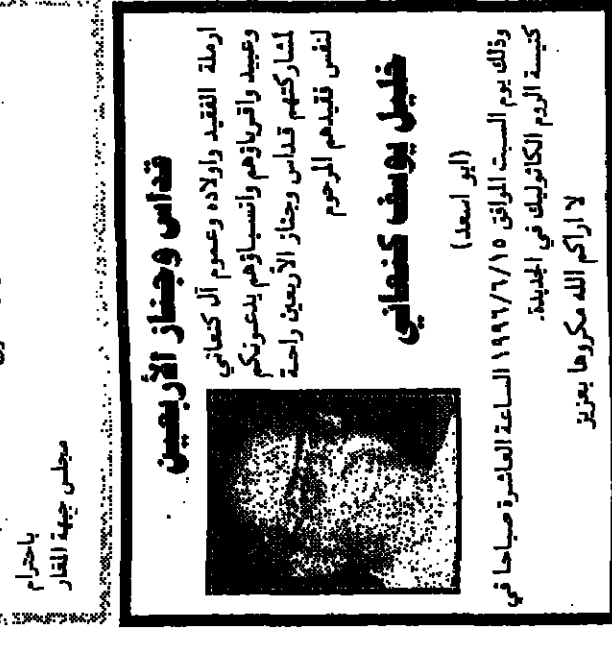 باحترام
مجلس جبهة المغار
قداس وجناز الأربعين
ارملة الفقيد واولاده وعموم آل كنعاني
وعبيد واقرباؤهم وانسباؤهم يدعونكم
لمشاركتهم قداس وجناز الأربعين راحة
لنفس فقيدهم المرحوم
خليل يوسف كنعاني
(ابو اسعد)
وذلك يوم السبت الموافق ١٩٩٦/٦/١٥ الساعة العاشرة صباحا في
كنيسة الروم الكاثوليك في الجديدة.
لا اراكم الله مكروها بعزيز